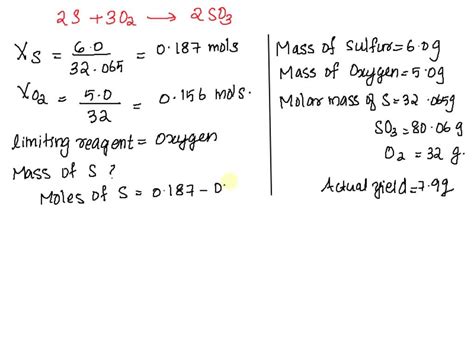 2S + 3O₂ → 2SO₃
X_S = 6.0/32.065 = 0.187 mols
X_O₂ = 5.0/32 = 0.156 mols.
limiting reagent = oxygen
Mass of S ?
Moles of S = 0.187 - 0.
Mass of Sulfur = 6.0g
Mass of Oxygen = 5.0g
Molar mass of S = 32.065g
SO₃ = 80.06g
O₂ = 32 g.
Actual yield = 7.9g